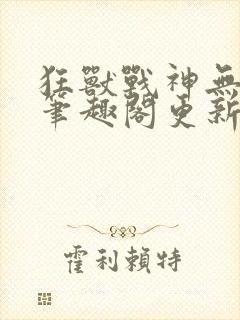 狂獸戰神無
筆趣閣更新
霍利賴特